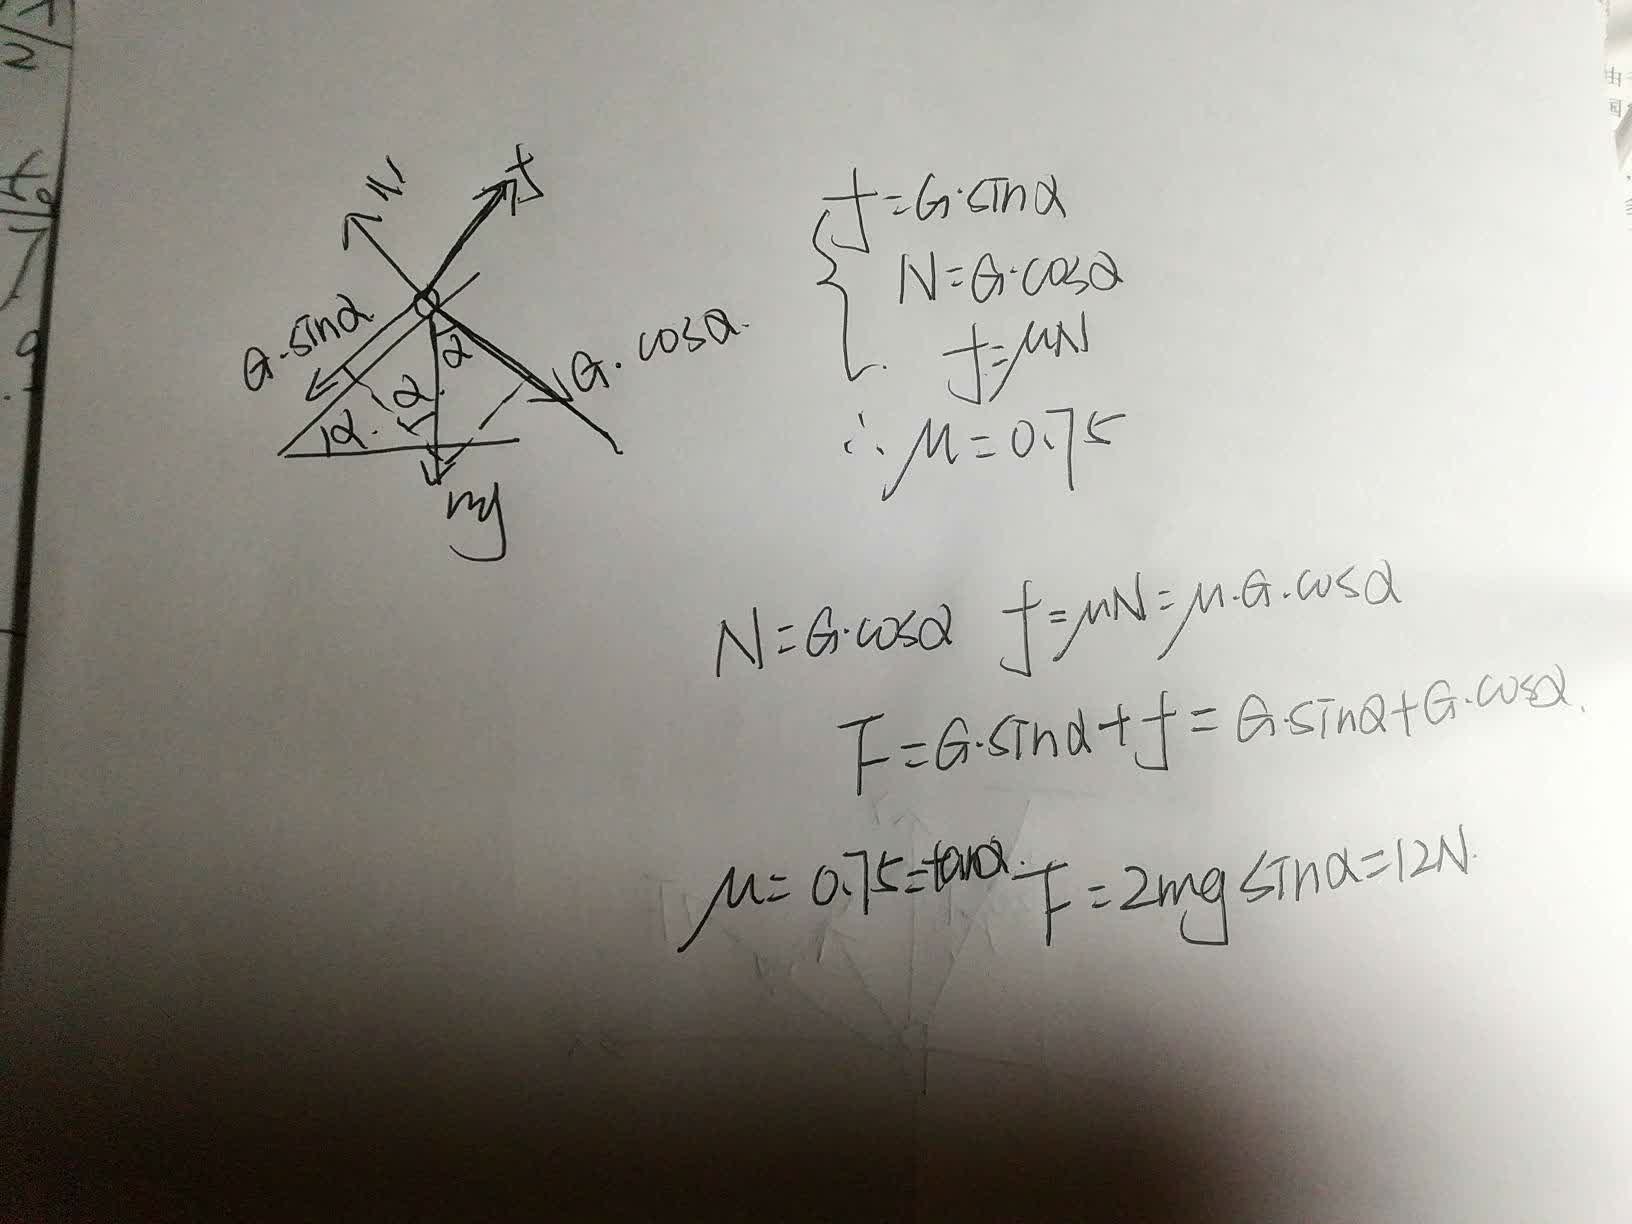 N
f
G·sinα
G·cosα.
α
α
α.
mg
f=G·sinα
N=G·cosα
f=μN
∴μ=0.75
N=G·cosα f=μN=μ·G·cosα
F=G·sinα+f=G·sinα+G·cosα.
μ=0.75=tanα. F=2mgsinα=12N.
由
国